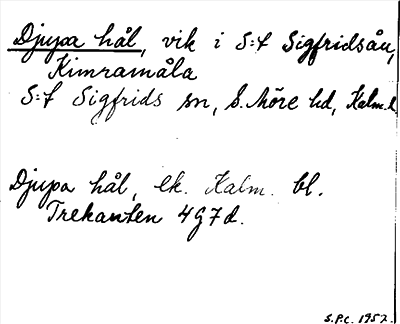 Djupa hål, vik i S:t Sigfridsån,
Kimramåla
S:t Sigfrids sn, S. Möre hd, Kalm. l.
Djupa hål, ek. Kalm. bl.
Trekanten 4G7d.
S.P.C. 1952.